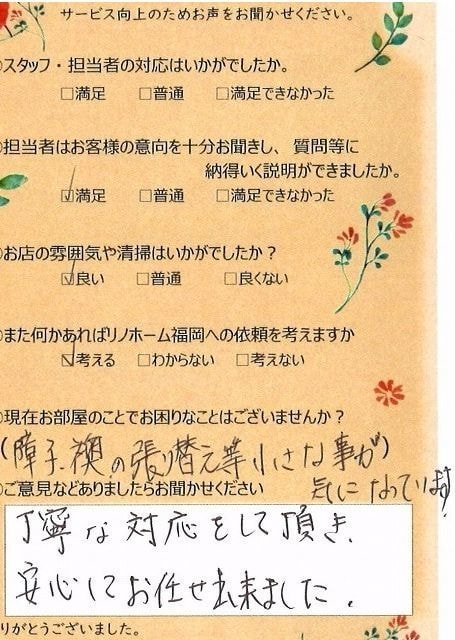 サービス向上のためお声をお聞かせください。
スタッフ・担当者の対応はいかがでしたか。
□満足 □普通 □満足できなかった
担当者はお客様の意向を十分お聞きし、質問等に
納得いく説明ができましたか。
☑満足 □普通 □満足できなかった
お店の雰囲気や清掃はいかがでしたか？
☑良い □普通 □良くない
また何かあればリノホーム福岡への依頼を考えますか
☑考える □わからない □考えない
現在お部屋のことでお困りなことはございませんか？
(障子、襖の張り替え等小さな事が)
気になっています
ご意見などありましたらお聞かせください
丁寧な対応をして頂き、
安心してお任せ出来ました。
りがとうございました。